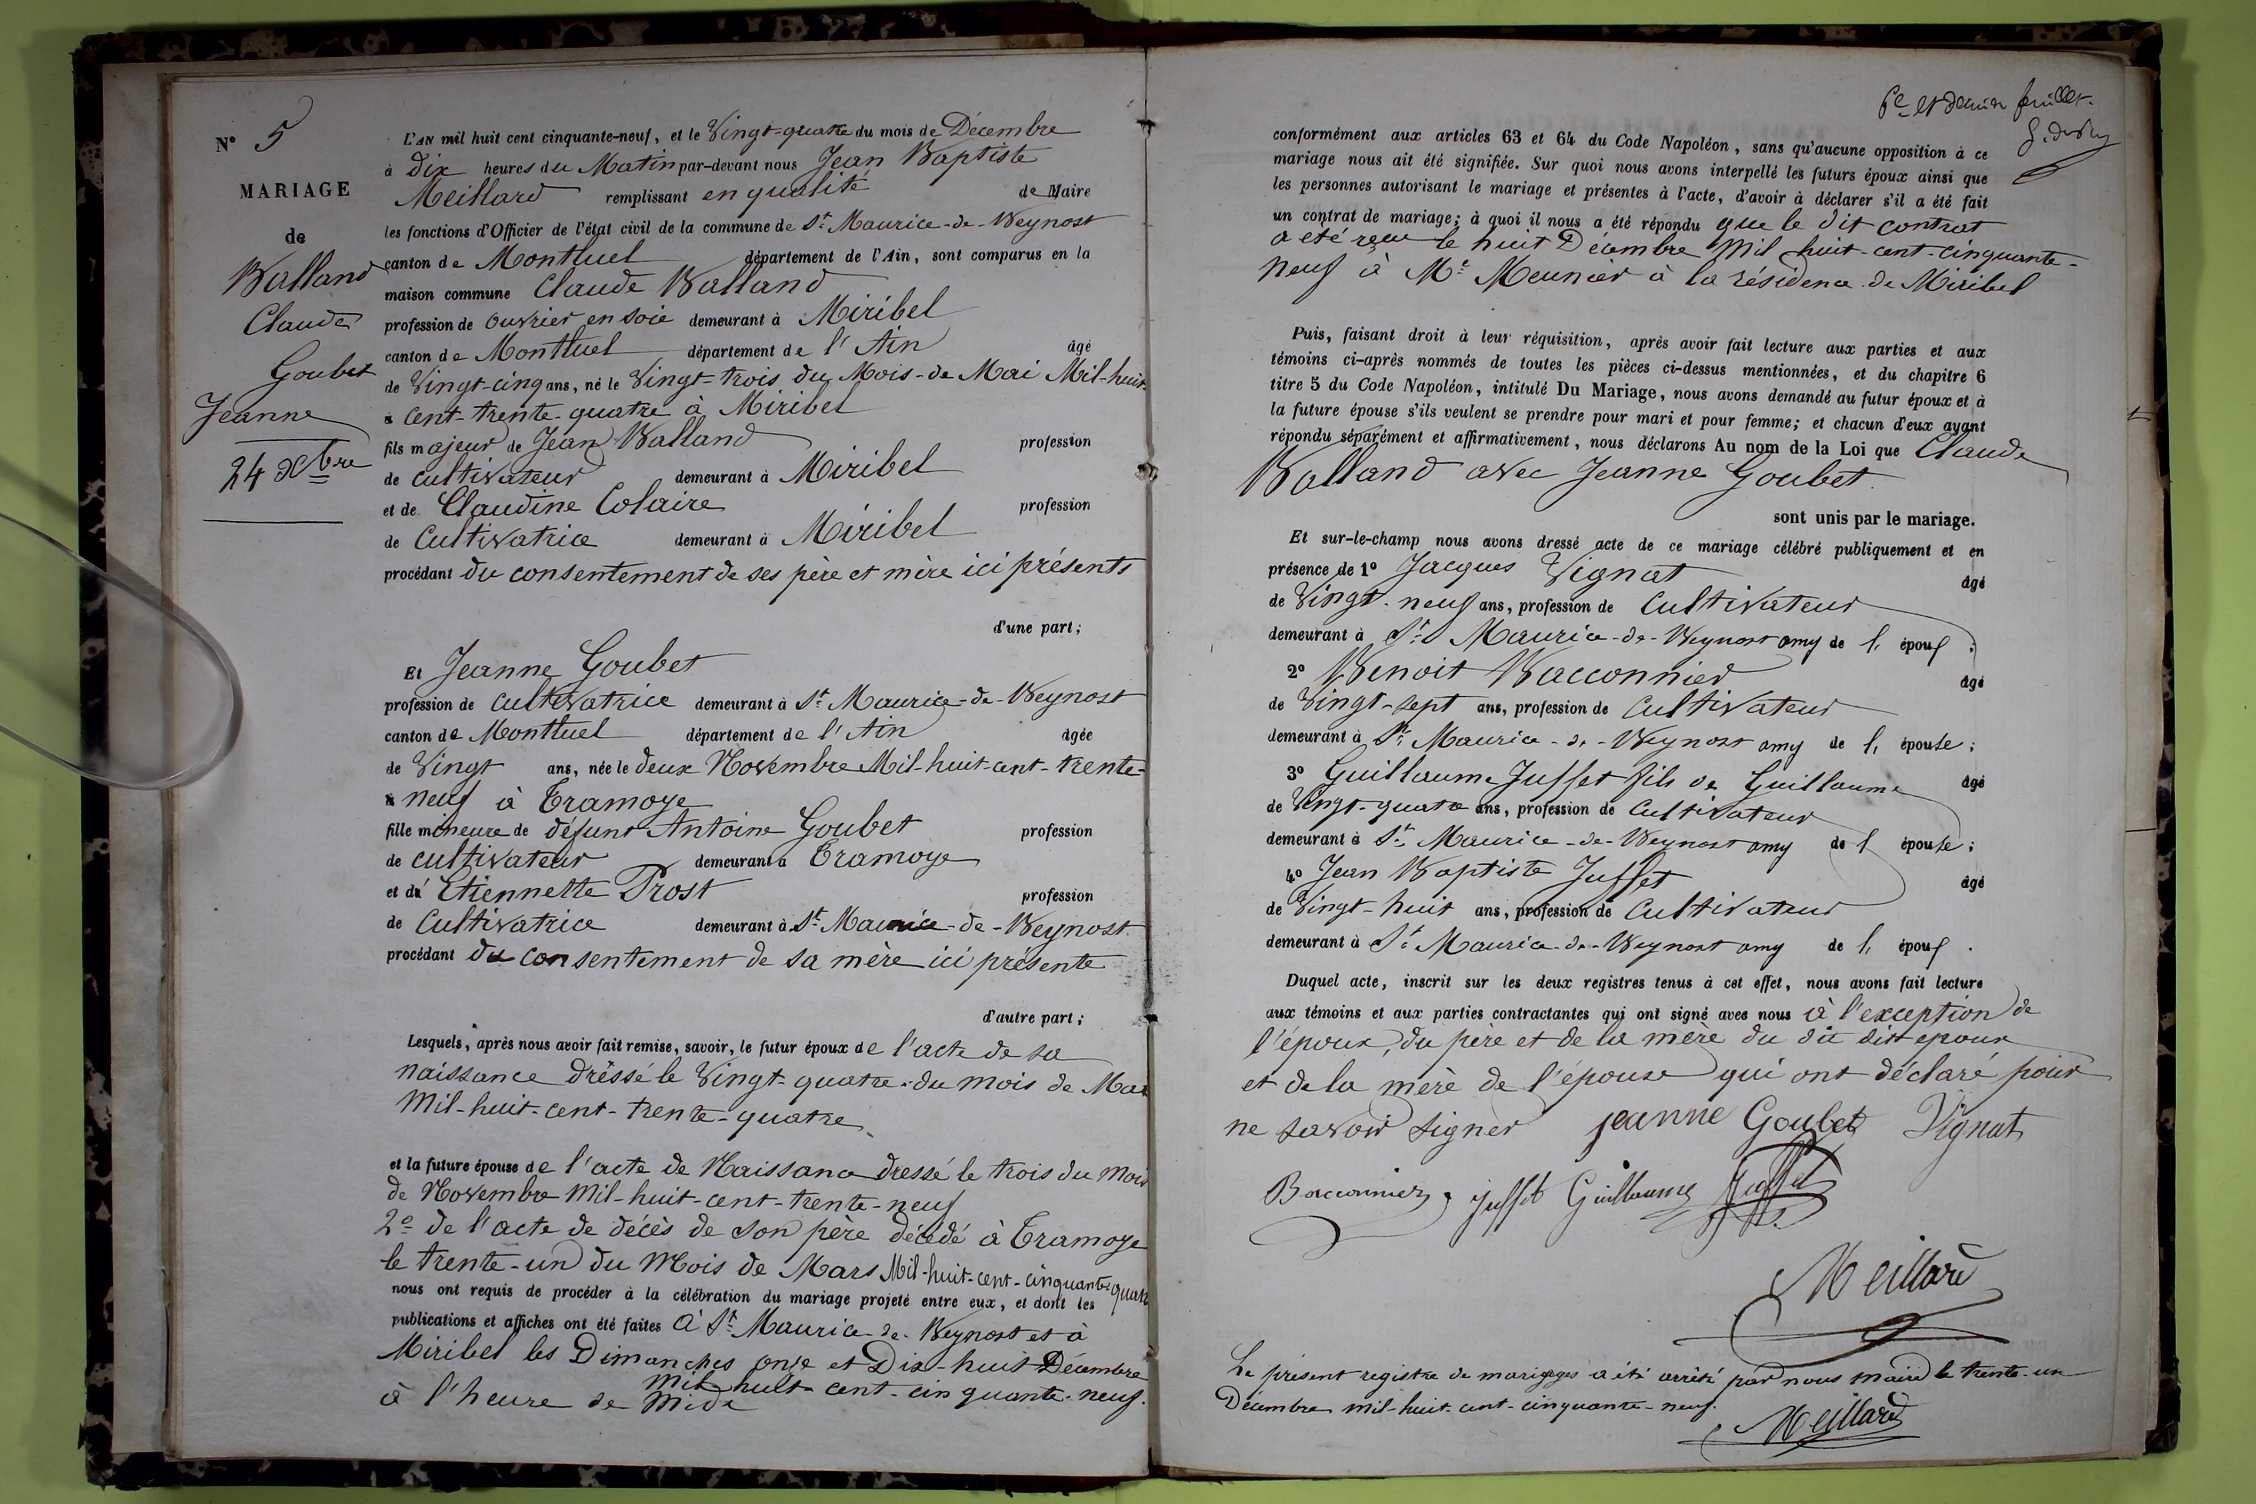 N° 5
MARIAGE
de
Balland
Claude
Goubet
Jeanne
24 Xbre
L'AN mil huit cent cinquante-neuf, et le Vingt-quatre du mois de Décembre
à dix heures du Matin par-devant nous Jean Baptiste
Meillard remplissant en qualité de Maire
les fonctions d'Officier de l'état civil de la commune de St Maurice-de-Beynost
canton de Montluel département de l'Ain, sont comparus en la
maison commune Claude Balland
profession de ouvrier en soie demeurant à Miribel
canton de Montluel département de l'Ain âgé
de Vingt-cinq ans, né le Vingt-trois du Mois-de Mai Mil-huit-
à cent-trente-quatre à Miribel
fils majeur de Jean Balland profession
de cultivateur demeurant à Miribel
et de Claudine Colaire profession
de Cultivatrice demeurant à Miribel
procédant du consentement de ses père et mère ici présents
d'une part;
Et Jeanne Goubet
profession de cultivatrice demeurant à St Maurice-de-Beynost
canton de Montluel département de l'Ain âgée
de Vingt ans, née le deux Novembre Mil-huit-cent-trente-
à neuf à Tramoye
fille mineure de défunt Antoine Goubet profession
de cultivateur demeurant à Tramoye
et de Etiennette Prost profession
de Cultivatrice demeurant à St Maurice-de-Beynost
procédant du consentement de sa mère ici présente
d'autre part;
Lesquels, après nous avoir fait remise, savoir, le futur époux de l'acte de sa
naissance dressé le Vingt-quatre-du mois de Mai
Mil-huit-cent-trente-quatre
et la future épouse de l'acte de Naissance dressé le trois du Mois
de Novembre Mil-huit-cent-trente-neuf
2° de l'acte de décès de son père décédé à Tramoye
le trente-un du Mois de Mars Mil-huit-cent-cinquante-quatr
nous ont requis de procéder à la célébration du mariage projeté entre eux, et dont les
publications et affiches ont été faites à St Maurice-de-Beynost et à
Miribel les Dimanches onze et Dix-huit Décembre
mil huit-cent-cinquante-neuf.
à l'heure de Midi
6e et dernier feuillet.
conformément aux articles 63 et 64 du Code Napoléon, sans qu'aucune opposition à ce
mariage nous ait été signifiée. Sur quoi nous avons interpellé les futurs époux ainsi que
les personnes autorisant le mariage et présentes à l'acte, d'avoir à déclarer s'il a été fait
un contrat de mariage; à quoi il nous a été répondu que le dit contrat
a été reçu le huit Décembre Mil huit-cent-cinquante-
neuf à Me Meunier à la résidence de Miribel
Puis, faisant droit à leur réquisition, après avoir fait lecture aux parties et aux
témoins ci-après nommés de toutes les pièces ci-dessus mentionnées, et du chapitre 6
titre 5 du Code Napoléon, intitulé Du Mariage, nous avons demandé au futur époux et à
la future épouse s'ils veulent se prendre pour mari et pour femme; et chacun d'eux ayant
répondu séparément et affirmativement, nous déclarons Au nom de la Loi que Claude
Balland avec Jeanne Goubet
sont unis par le mariage.
Et sur-le-champ nous avons dressé acte de ce mariage célébré publiquement et en
présence de 1° Jacques Vignat âgé
de Vingt-neuf ans, profession de Cultivateur
demeurant à St Maurice-de-Beynost amy de l' époux;
2° Benoit Bacconnier âgé
de Vingt-sept ans, profession de Cultivateur
demeurant à St Maurice-de-Beynost amy de l' épouse;
3° Guillaume Juffet fils de Guillaume âgé
de Vingt-quatre ans, profession de Cultivateur
demeurant à St Maurice-de-Beynost amy de l' épouse;
4° Jean Baptiste Juffet âgé
de Vingt-huit ans, profession de Cultivateur
demeurant à St Maurice-de-Beynost amy de l' époux.
Duquel acte, inscrit sur les deux registres tenus à cet effet, nous avons fait lecture
aux témoins et aux parties contractantes qui ont signé avec nous à l'exception de
l'époux, du père et de la mère du dit dit epoux
et de la mère de l'épouse qui ont déclaré pour
ne savoir signer jeanne Goubet Vignat
Bacconnier juffet Guillaume Juffet
Meillard
Le présent registre de mariages a été arrêté par nous maire le trente-un
Décembre mil-huit-cent-cinquante-neuf.
Meillard